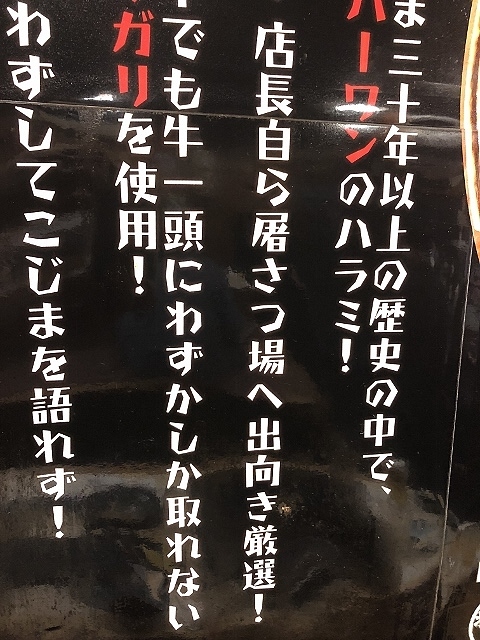 ま三十年以上の歴史の中で、
バーワンのハラミ！
店長自ら屠さつ場へ出向き厳選！
中でも牛一頭にわずかしか取れない
ガリを使用！
わずしてこじまを語れず！